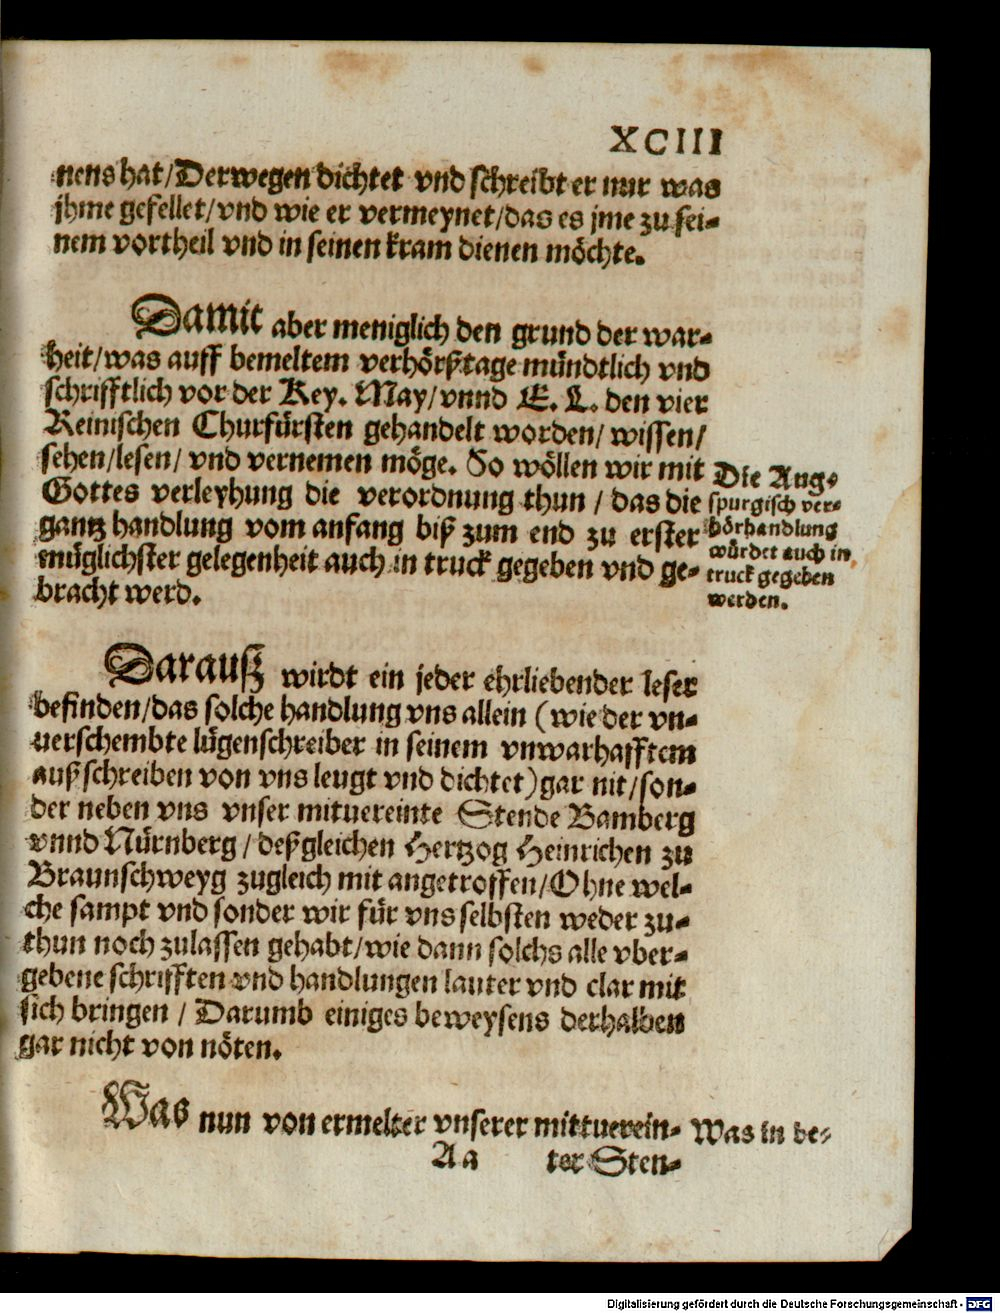 XCIII
nens hat/Derwegen dichtet vnd schreibt er nur was
jhme gefellet/vnd wie er vermeynet/das es jme zu sei-
nem vortheil vnd in seinen kram dienen möchte.
Damit aber meniglich den grund der war-
heit/was auff bemeltem verhörßtage mündtlich vnd
schrifftlich vor der Key. May/vnnd E. L. den vier
Reinischen Churfürsten gehandelt worden/ wissen/
sehen/lesen/ vnd vernemen möge. So wöllen wir mit
Gottes verleyhung die verordnung thun / das die
gantz handlung vom anfang biß zum end zu erster
müglichster gelegenheit auch in truck gegeben vnd ge-
bracht werd.
Die Aug-
spurgisch ver-
hörhandlung
würdet auch in
truck gegeben
werden.
Darauß wirdt ein jeder ehrliebender leser
befinden/das solche handlung vns allein (wie der vn-
uerschembte lügenschreiber in seinem vnwarhafftem
außschreiben von vns leugt vnd dichtet) gar nit/son-
der neben vns vnser mituereinte Stende Bamberg
vnnd Nürnberg / deßgleichen Hertzog Heinrichen zu
Braunschweyg zugleich mit angetroffen/Ohne wel-
che sampt vnd sonder wir für vns selbsten weder zu-
thun noch zulassen gehabt/wie dann solchs alle vber-
gebene schrifften vnd handlungen lauter vnd clar mit
sich bringen / Darumb einiges beweysens derhalben
gar nicht von nöten.
Was nun von ermelter vnserer mittuerein-
Was in de-
Aa ter Sten-
Digitalisierung gefördert durch die Deutsche Forschungsgemeinschaft - DFG